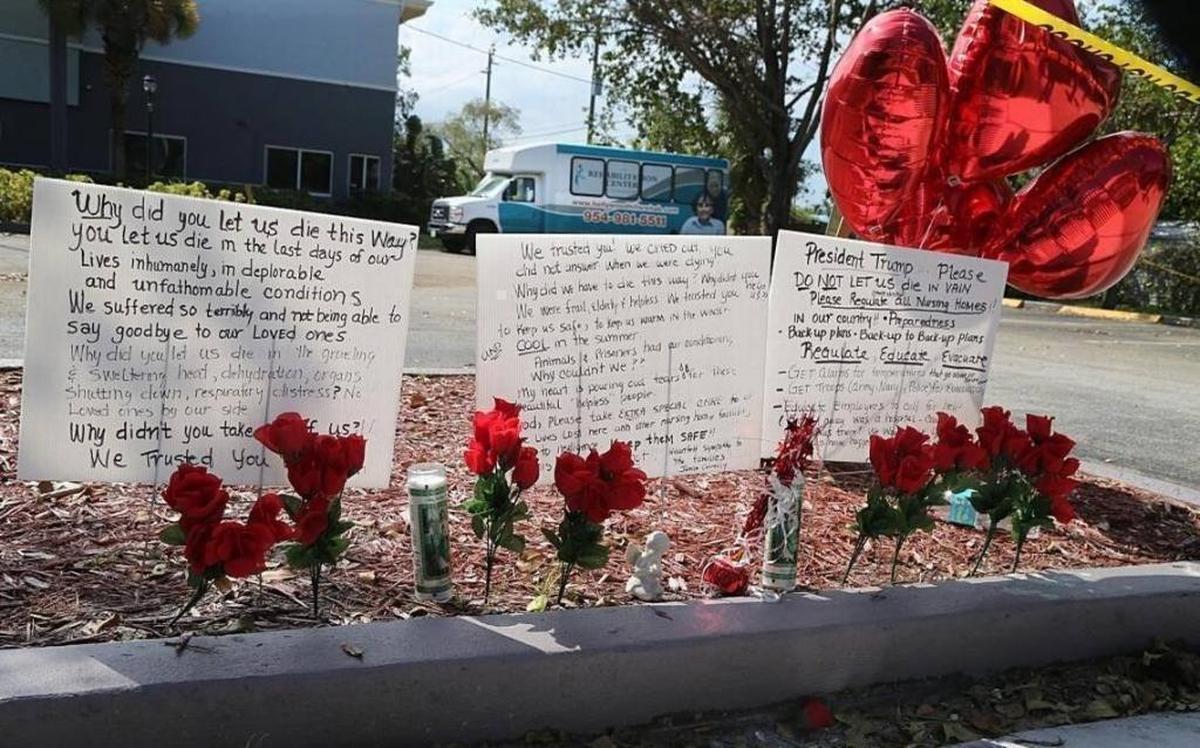 Why did you let us die this Way?
you let us die in the last days of our
Lives inhumanely, in deplorable
and unfathomable conditions
We suffered so terribly and not being able to
say goodbye to our Loved ones
Why did you let us die in the grueling
& Sweltering heat, dehydration, organs
Shutting down, respiratory distress? No
Loved ones by our side
Why didn't you take us?
We Trusted You
We trusted you! we cried out, you
did not answer when we were crying
Why did we have to die this way? Why didn't you
help us??
We were frail, elderly & helpless We trusted you
to keep us safe, to keep us warm in the winter
COOL in the summer
Animals & Prisoners had air conditioning
Why couldn't We??
My heart is pouring out tears for these
beautiful helpless people
Please take EXTRA SPECIAL CARE to
Lives Lost here and other nursing home
keep them SAFE"
the families
President Trump... Please
DO NOT LET US die in VAIN
Please Regulate all Nursing Homes!!
in our country!! • Preparedness
• Back-up plans • Back-up to Back-up plans
Regulate, Educate, Evacuate
- GET Alarms for temperatures that go
- GET Troops (Army, Navy, Police, Fire)
- Educate Employees to call for
REHABILITATION
CENTER
954-981-5511